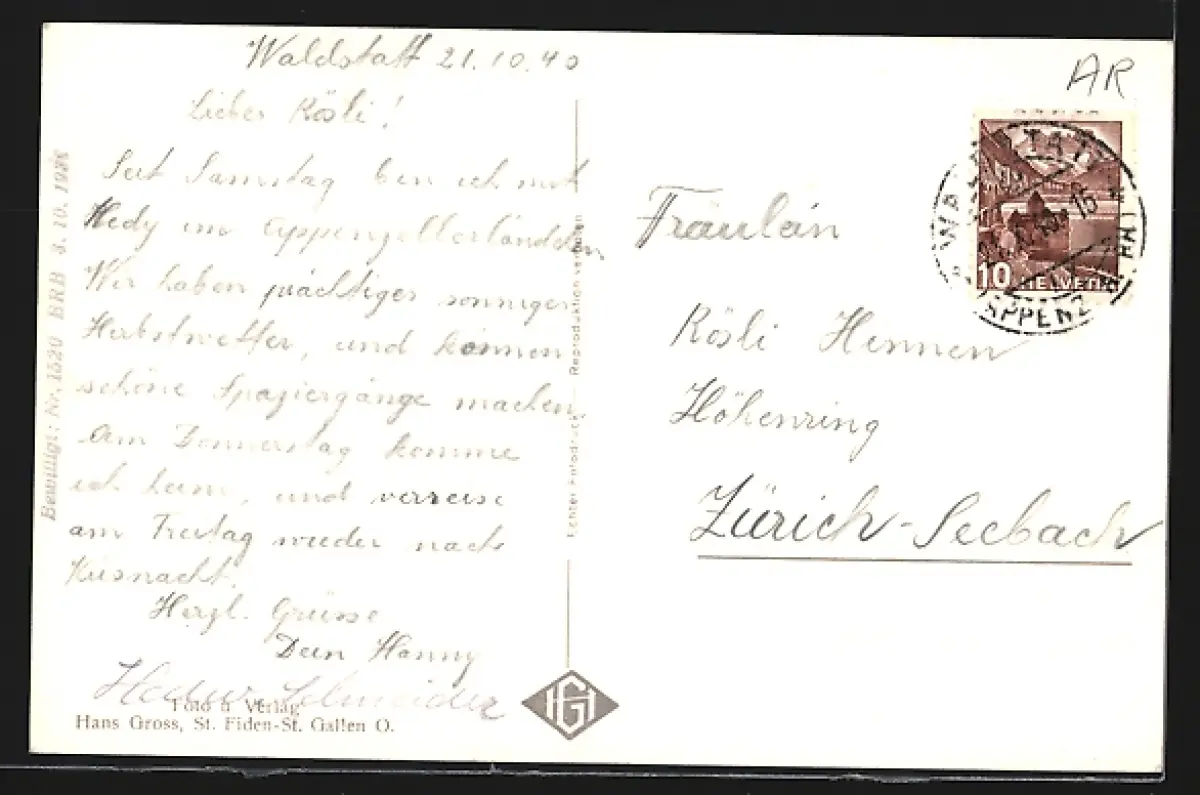 Waldstatt 21.10.40
Liebes Rösli!
Seit Samstag bin ich mit
Hedy im Appenzellerländchen
Wir haben prächtiges sonniges
Herbstwetter, und können
schöne Spaziergänge machen.
Am Donnerstag komme
ich heim, und verreise
am Freitag wieder nach
Küsnacht.
Herzl. Grüsse
Dein Hanny
Hedw. Schneider
Foto u Verlag
Hans Gross, St. Fiden-St. Gallen O.
Bewilligt: Nr. 1520 BRB 3. 10. 1939
Echter Fotodruck — Reproduktion verboten
HG
AR
WALDSTATT
APPENZ.
10 HELVETIA
Fräulein
Rösli Hinnen
Höhenring
Zürich-Seebach